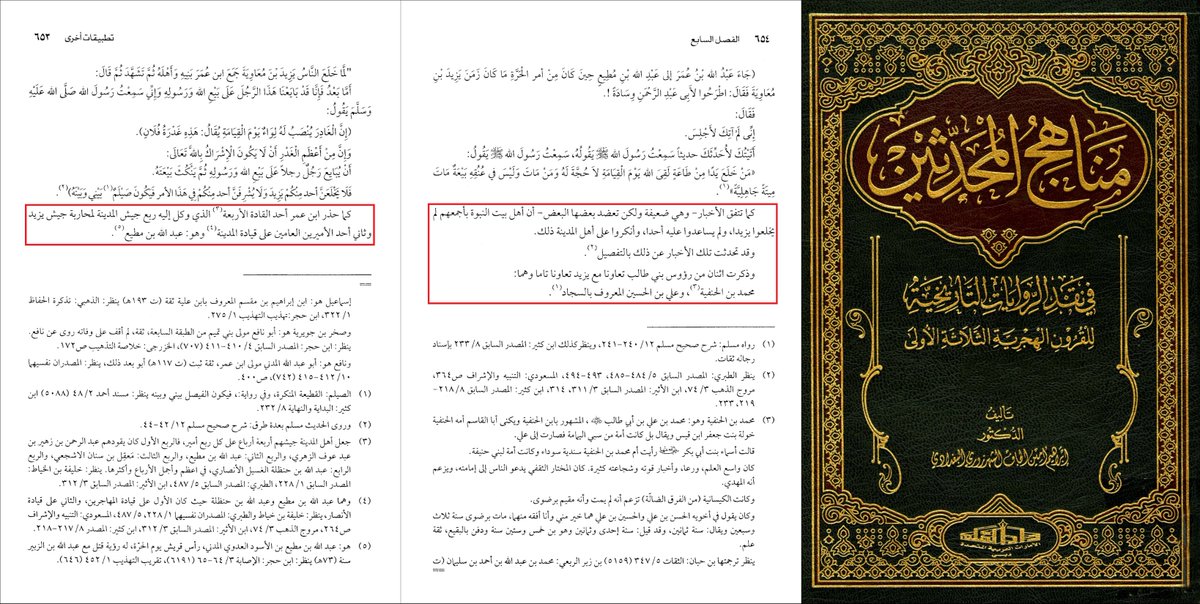 تطبيقات أخرى ٦٥٣
"لَمَّا خَلَعَ النَّاسُ يَزِيدَ بْنَ مُعَاوِيَةَ جَمَعَ ابن عُمَرَ بَنِيهِ وَأَهْلَهُ ثُمَّ تَشَهَّدَ ثُمَّ قَالَ:
أَمَّا بَعْدُ فَإِنَّا قَدْ بَايَعْنَا هَذَا الرَّجُلَ عَلَى بَيْعِ الله وَرَسُولِهِ وَإِنِّي سَمِعْتُ رَسُولَ الله صَلَّى الله عَلَيْهِ
وَسَلَّمَ يَقُولُ:
(إِنَّ الْغَادِرَ يُنْصَبُ لَهُ لِوَاءٌ يَوْمَ الْقِيَامَةِ يُقَالُ: هَذِهِ غَدْرَةُ فُلَانٍ).
وَإِنَّ مِنْ أَعْظَمِ الْغَدْرِ أَنْ لَا يَكُونَ الْإِشْرَاكُ بِاللهِ تَعَالَى:
أَنْ يُبَايِعَ رَجُلٌ رجلاً عَلَى بَيْعِ الله وَرَسُولِهِ ثُمَّ يَنْكُثَ بَيْعَتَهُ.
فَلَا يَخْلَعَنَّ أحد مِنْكُمْ يَزِيدَ وَلَا يُشْرِفَنَّ أحد مِنْكُمْ فِي هذا الأمر فَيَكُونَ صَيْلَمٌ(١) بَيْنِي وَبَيْنَهُ)(٢).
كما حذر ابن عمر أحد القادة الأربعة(٣) الذي وكل إليه ربع جيش المدينة لمحاربة جيش يزيد
وثاني أحد الأميرين العامين على قيادة المدينة(٤) وهو: عبد الله بن مطيع(٥).
إسماعيل هو: ابن إبراهيم بن مقسم المعروف بابن علية ثقة (ت ١٩٣هـ) ينظر: الذهبي: تذكرة الحفاظ
١/ ٣٢٢، ابن حجر:تهذيب التهذيب ١/ ٢٧٥.
وصخر بن جويرية هو: أبو نافع مولى بني تميم من الطبقة السابعة، ثقة، لم أقف على وفاته روى عن نافع.
ينظر: ابن حجر: المصدر السابق ٤/ ٤١٠-٤١١ (٧٠٧)، الخزرجي: خلاصة التذهيب ص١٧٢.
ونافع هو: أبو عبد الله المدني مولى ابن عمر، ثقة ثبت (ت ١١٧هـ) أبو بعد ذلك، ينظر: المصدران نفسيهما
١٠/ ٤١٢-٤١٥ (٧٤٢)، ص٤٠٠.
(١) الصيلم: القطيعة المنكرة، وفي رواية:، فيكون الفيصل بيني وبينه ينظر: مسند أحمد ٢/ ٤٨ (٥٠٨٨) ابن
كثير: البداية والنهاية ٨/ ٢٣٢.
(٢) وروى الحديث مسلم بعدة طرق: شرح صحيح مسلم ١٢/ ٤٢-٤٤.
(٣) جعل أهل المدينة جيشهم أربعة أرباع على كل ربع أمير، فالربع الأول كان يقودهم عبد الرحمن بن زهير بن
عبد عوف الزهري، والربع الثاني: عبد الله بن مطيع، والربع الثالث: مَعقِل بن سنان الاشجعي، والربع
الرابع: عبد الله بن حنظلة الغسيل الأنصاري، في اعظم وأجمل الأرباع وأكثرها. ينظر: خليفة بن الخياط:
المصدر السابق ١/ ٢٢٨، الطبري: المصدر السابق ٥/ ٤٨٧، ابن الأثير: المصدر السابق ٣/ ٣١٢.
(٤) وهما عبد الله بن مطيع وعبد الله بن حنظلة حيث كان الأول على قيادة المهاجرين، والثاني على قيادة
الأنصار، ينظر: خليفة بن خياط والطبري: المصدران نفسيهما ١/ ٢٢٨، ٥/ ٤٨٧، المسعودي: التنبيه والإشراف
ص٢٦٤، مروج الذهب ٣/ ٧٤، ابن الأثير: المصدر السابق ٣/ ٣١٢، ابن كثير: المصدر السابق ٨/ ٢١٧-٢١٨.
(٥) هو: عبد الله بن مطيع بن الأسود العدوي المدني، رأس قريش يوم الحرّة، له رؤية قتل مع عبد الله بن الزبير
سنة (٧٣هـ) ينظر: ابن حجر: الإصابة ٣/ ٦٤-٦٥ (٦١٩١)، تقريب التهذيب ١/ ٤٥٢ (٦٤٦).
٦٥٤ الفصل السابع
(جَاءَ عَبْدُ الله بْنُ عُمَرَ إلى عَبْدِ الله بْنِ مُطِيعٍ حِينَ كَانَ مِنْ أمر الْحَرَّةِ مَا كَانَ زَمَنَ يَزِيدَ بْنِ
مُعَاوِيَةَ فَقَالَ: اطْرَحُوا لأَبِي عَبْدِ الرَّحْمَنِ وِسَادَةً !.
فَقَالَ:
إِنِّى لَمْ آتِكَ لأَجْلِسَ.
أَتَيْتُكَ لأُحَدِّثَكَ حديثاً سَمِعْتُ رَسُولَ الله ﷺ يَقُولُهُ، سَمِعْتُ رَسُولَ الله ﷺ يَقُولُ:
«مَنْ خَلَعَ يَدًا مِنْ طَاعَةٍ لَقِىَ الله يَوْمَ الْقِيَامَةِ لَا حُجَّةَ لَهُ وَمَنْ مَاتَ وَلَيْسَ فِي عُنُقِهِ بَيْعَةٌ مَاتَ
مِيتَةً جَاهِلِيَّةً»(١)
كما تتفق الأخبار- وهي ضعيفة ولكن تعضد بعضها البعض- أن أهل بيت النبوة بأجمعهم لم
يخلعوا يزيدا، ولم يساعدوا عليه أحدا، وأنكروا على أهل المدينة ذلك.
وقد تحدثت تلك الأخبار عن ذلك بالتفصيل(٢).
وذكرت اثنان من رؤوس بني طالب تعاونا مع يزيد تعاونا تاما وهما:
محمد بن الحنفية(٣)، وعلي بن الحسين المعروف بالسجاد(١).
(١) رواه مسلم: شرح صحيح مسلم ١٢/ ٢٤٠-٢٤١، وينظركذلك ابن كثير: المصدر السابق ٨/ ٢٣٣ بإسناد
رجاله ثقات.
(٢) ينظر الطبري: المصدر السابق ٥/ ٤٨٤-٤٨٥، ٤٩٣-٤٩٤، المسعودي: التنبيه والإشراف ص٣٦٤،
مروج الذهب ٣/ ٧٤، ابن الأثير: المصدر السابق ٣/ ٣١١، ٣١٤، ابن كثير: المصدر السابق ٨/ ٢١٨-
٢١٩، ٢٣٣.
(٣) محمد بن الحنفية وهو: محمد بن علي بن أبي طالب ، المشهور بابن الحنفية ويكنى أبا القاسم أمه الحنفية
خولة بنت جعفر ابن قيس ويقال بل كانت أمة من سبي اليمامة فصارت إلى علي.
قالت أسماء بنت أبي بكر رأيت أم محمد بن الحنفية سندية سوداء وكانت أمة لبني حنيفة.
كان واسع العلم، ورعا، وأخبار قوته وشجاعته كثيرة. كان المختار الثقفي يدعو الناس إلى إمامته، ويزعم
أنه المهدي.
وكانت الكيسانية (من الفرق الضالّة) تزعم أنه لم يمت وأنه مقيم برضوى.
وكان يقول في أخويه الحسن بن علي والحسين بن علي هما خير مني وأنا أفقه منهما، مات برضوى سنة ثلاث
وسبعين ويقال: سنة ثمانين، وقد قيل: سنة إحدى وثمانين وهو بن خمس وستين سنة ودفن بالبقيع، ثقة
علم.
ينظر ترجمتها بن حبان: الثقات ٥/ ٣٤٧ (٥١٥٩) بن زبر الربعي: محمد بن عبد الله بن أحمد بن سليمان (ت
مَنَاهِجُ المُحَدِّثِينَ
فِي نَقْدِ الرِّوَايَاتِ التَّارِيخِيَّةِ
لِلقُرُونِ الهِجْرِيَّةِ الثَّلاثَةِ الأُولَى
تأليف
الدكتور
إبراهيم أمين الجاف الشهرزوري البغدادي
دار القلم